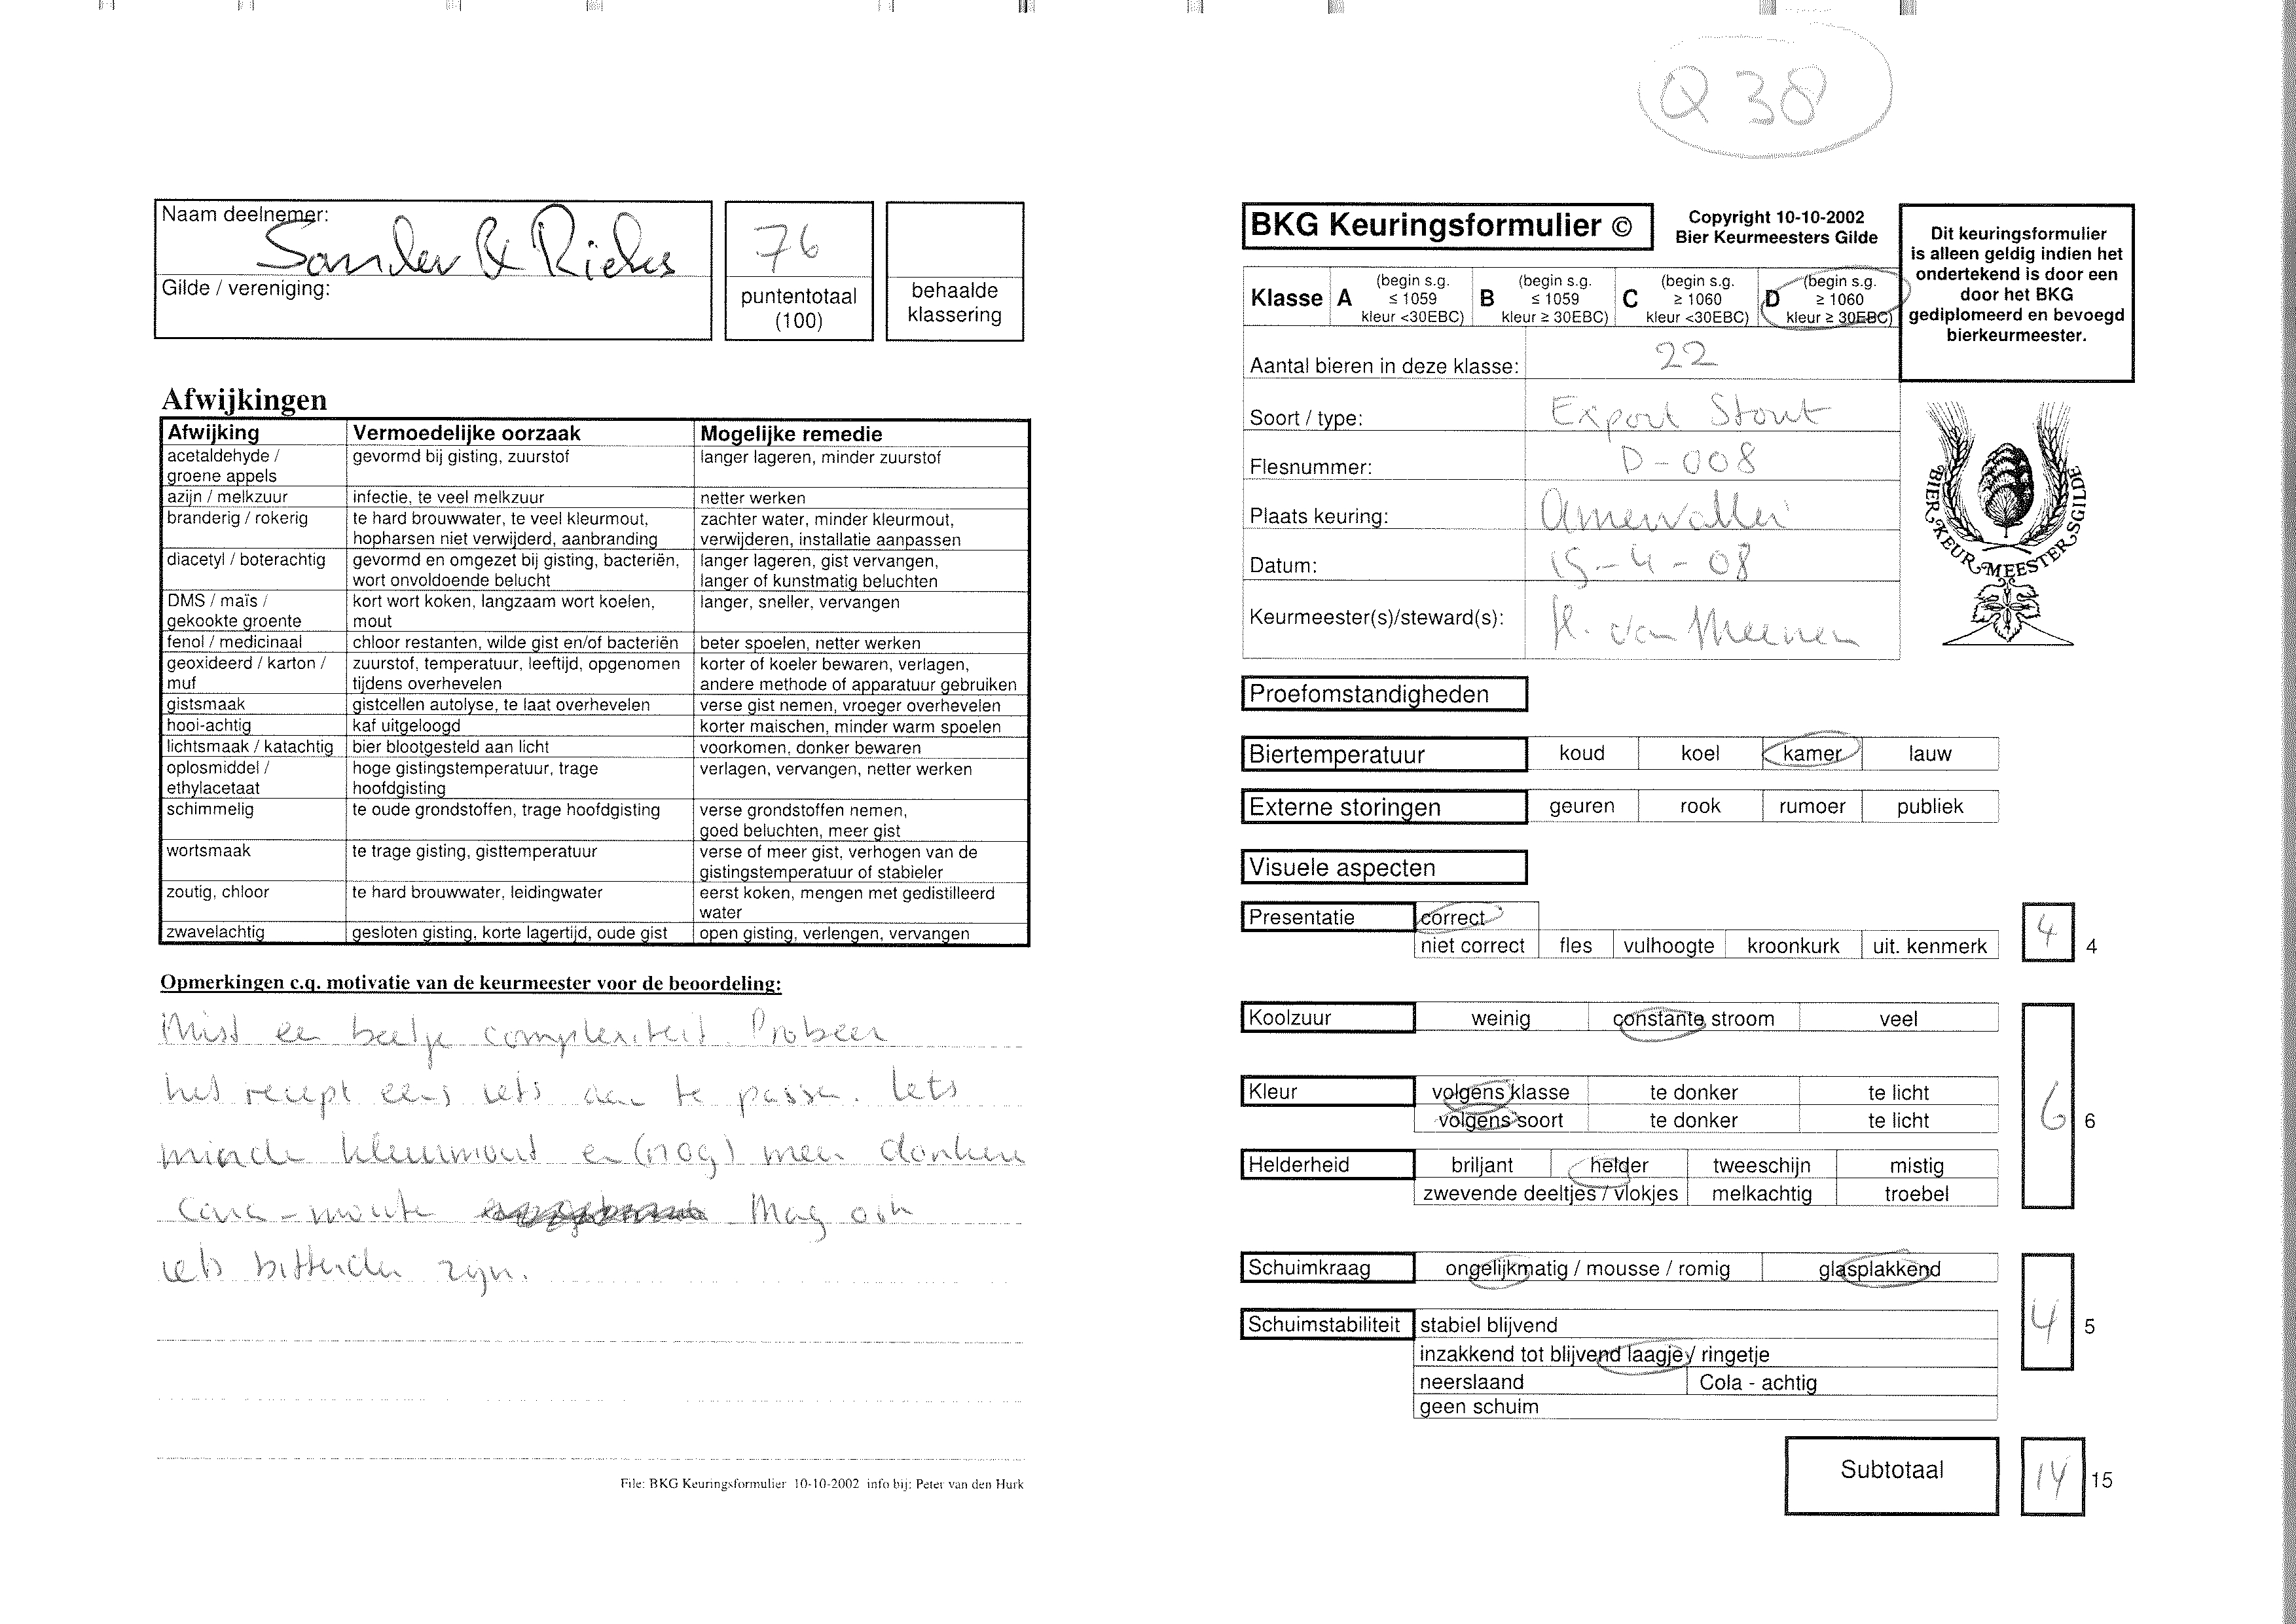 Q 38
Naam deelnemer:
Sander & Riekus
Gilde / vereniging:
76
puntentotaal
(100)
behaalde
klassering
Afwijkingen
Afwijking Vermoedelijke oorzaak Mogelijke remedie
acetaldehyde / gevormd bij gisting, zuurstof langer lageren, minder zuurstof
groene appels
azijn / melkzuur infectie, te veel melkzuur netter werken
branderig / rokerig te hard brouwwater, te veel kleurmout, zachter water, minder kleurmout,
hopharsen niet verwijderd, aanbranding verwijderen, installatie aanpassen
diacetyl / boterachtig gevormd en omgezet bij gisting, bacteriën, langer lageren, gist vervangen,
wort onvoldoende belucht langer of kunstmatig beluchten
DMS / maïs / kort wort koken, langzaam wort koelen, langer, sneller, vervangen
gekookte groente mout
fenol / medicinaal chloor restanten, wilde gist en/of bacteriën beter spoelen, netter werken
geoxideerd / karton / zuurstof, temperatuur, leeftijd, opgenomen korter of koeler bewaren, verlagen,
muf tijdens overhevelen andere methode of apparatuur gebruiken
gistsmaak gistcellen autolyse, te laat overhevelen verse gist nemen, vroeger overhevelen
hooi-achtig kaf uitgeloogd korter maischen, minder warm spoelen
lichtsmaak / katachtig bier blootgesteld aan licht voorkomen, donker bewaren
oplosmiddel / hoge gistingstemperatuur, trage verlagen, vervangen, netter werken
ethylacetaat hoofdgisting
schimmelig te oude grondstoffen, trage hoofdgisting verse grondstoffen nemen,
goed beluchten, meer gist
wortsmaak te trage gisting, gisttemperatuur verse of meer gist, verhogen van de
gistingstemperatuur of stabieler
zoutig, chloor te hard brouwwater, leidingwater eerst koken, mengen met gedistilleerd
water
zwavelachtig gesloten gisting, korte lagertijd, oude gist open gisting, verlengen, vervangen
Opmerkingen c.q. motivatie van de keurmeester voor de beoordeling:
Mist een beetje complexiteit. Probeer
het recept eens iets aan te passen. Iets
minder kleurmout en (nog) meer donkere
cara-moute Mag ook
iets bitterder zijn.
File: BKG Keuringsformulier 10-10-2002 info bij: Peter van den Hurk
BKG Keuringsformulier ©
Copyright 10-10-2002
Bier Keurmeesters Gilde
Dit keuringsformulier
is alleen geldig indien het
ondertekend is door een
door het BKG
gediplomeerd en bevoegd
bierkeurmeester.
Klasse A (begin s.g. ≤ 1059 kleur <30EBC) B (begin s.g. ≤ 1059 kleur ≥ 30EBC) C (begin s.g. ≥ 1060 kleur <30EBC) D (begin s.g. ≥ 1060 kleur ≥ 30EBC)
Aantal bieren in deze klasse: 22
Soort / type: Export Stout
Flesnummer: D-008
Plaats keuring:
Datum: 15-4-08
Keurmeester(s)/steward(s): H. van Meenen
BIER KEUR MEESTERS GILDE
Proefomstandigheden
Biertemperatuur koud koel kamer lauw
Externe storingen geuren rook rumoer publiek
Visuele aspecten
Presentatie correct
niet correct fles vulhoogte kroonkurk uit. kenmerk 4 4
Koolzuur weinig constante stroom veel
Kleur volgens klasse te donker te licht
volgens soort te donker te licht 6 6
Helderheid briljant helder tweeschijn mistig
zwevende deeltjes / vlokjes melkachtig troebel
Schuimkraag ongelijkmatig / mousse / romig glasplakkend
Schuimstabiliteit stabiel blijvend 4 5
inzakkend tot blijvend laagje / ringetje
neerslaand Cola - achtig
geen schuim
Subtotaal 14 15